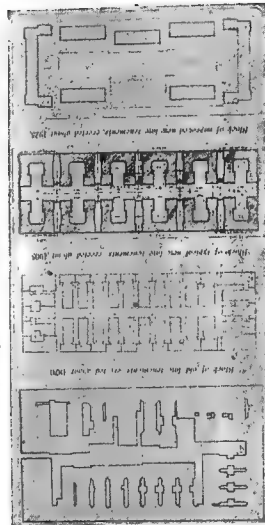 Block of old law tenements erected about 1901
Block of typical new law tenements erected about 1908
Block of improved new law tenements erected about 1925